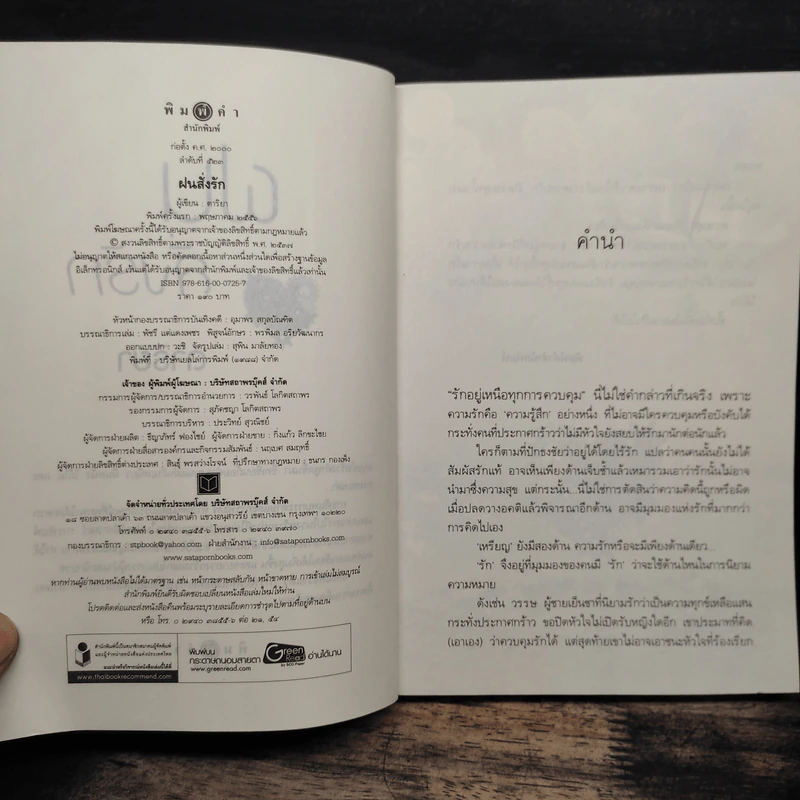 พิมพ์คำ
สำนักพิมพ์
ก่อตั้ง ค.ศ. ๒๐๐๐
ลำดับที่ ๕๒๓
ฝนสั่งรัก
ผู้เขียน : ดาริยา
พิมพ์ครั้งแรก : พฤษภาคม ๒๕๕๖
พิมพ์โฆษณาครั้งนี้ได้รับอนุญาตจากเจ้าของลิขสิทธิ์ตามกฎหมายแล้ว
© สงวนลิขสิทธิ์ตามพระราชบัญญัติลิขสิทธิ์ พ.ศ. ๒๕๓๗
ไม่อนุญาตให้สแกนหนังสือ หรือคัดลอกเนื้อหาส่วนหนึ่งส่วนใดเพื่อสร้างฐานข้อมูล
อิเล็กทรอนิกส์ เว้นแต่ได้รับอนุญาตจากสำนักพิมพ์และเจ้าของลิขสิทธิ์แล้วเท่านั้น
ISBN 978-616-00-0725-7
ราคา ๑๙๐ บาท
หัวหน้ากองบรรณาธิการบันเทิงคดี : อุมาพร สกุลบัณฑิต
บรรณาธิการเล่ม : พัชรี แต่แดงเพชร พิสูจน์อักษร : พรพิมล อริยวัฒนากร
ออกแบบปก : วะชิ จัดรูปเล่ม : สุพิน มาลัยทอง
พิมพ์ที่ : บริษัทเยลโล่การพิมพ์ (๑๙๘๘) จำกัด
เจ้าของ ผู้พิมพ์ผู้โฆษณา : บริษัทสถาพรบุ๊คส์ จำกัด
กรรมการผู้จัดการ/บรรณาธิการอำนวยการ : วรพันธ์ โลกิตสถาพร
รองกรรมการผู้จัดการ : สุภัคชญา โลกิตสถาพร
บรรณาธิการบริหาร : ประวิทย์ สุวณิชย์
ผู้จัดการฝ่ายผลิต : ธีญาภัทร์ ผ่องไชย์ ผู้จัดการฝ่ายขาย : กิ่งแก้ว ลิกขะไชย
ผู้จัดการฝ่ายสื่อสารองค์กรและกิจกรรมสัมพันธ์ : นฤเบศ สมฤทธิ์
ผู้จัดการฝ่ายลิขสิทธิ์ต่างประเทศ : สินธุ์ พรสว่างโรจน์ ที่ปรึกษาทางกฎหมาย : ธนกร กองเพ็ง
จัดจำหน่ายทั่วประเทศโดย บริษัทสถาพรบุ๊คส์ จำกัด
๑๘ ซอยลาดปลาเค้า ๖๓ ถนนลาดปลาเค้า แขวงอนุสาวรีย์ เขตบางเขน กรุงเทพฯ ๑๐๒๒๐
โทรศัพท์ ๐ ๒๙๔๐ ๓๘๕๕-๖ โทรสาร ๐ ๒๙๔๐ ๓๙๗๐
กองบรรณาธิการ : stpbook@yahoo.com ฝ่ายสำนักงาน : info@satapornbooks.com
www.satapornbooks.com
หากท่านผู้อ่านพบหนังสือไม่ได้มาตรฐาน เช่น หน้ากระดาษสลับกัน หน้าขาดหาย การเข้าเล่มไม่สมบูรณ์
สำนักพิมพ์ยินดีรับผิดชอบเปลี่ยนหนังสือเล่มใหม่ให้ท่าน
โปรดติดต่อและส่งหนังสือคืนพร้อมระบุรายละเอียดการชำรุดไปตามที่อยู่ด้านบน
หรือ โทร. ๐ ๒๙๔๐ ๓๘๕๕-๖ ต่อ ๒๑, ๕๔
สำนักพิมพ์นี้เป็นสมาชิกสมาคมผู้จัดพิมพ์
และผู้จำหน่ายหนังสือแห่งประเทศไทย
แนะนำหรือวิจารณ์หนังสือเล่มนี้ได้ที่
www.thaibookrecommend.com
พิมพ์บน
กระดาษถนอมสายตา
www.greenread.com
Green Read
by SCG Paper
อ่านได้นาน
คำนำ
“รักอยู่เหนือทุกการควบคุม” นี่ไม่ใช่คำกล่าวที่เกินจริง เพราะ
ความรักคือ ‘ความรู้สึก’ อย่างหนึ่ง ที่ไม่อาจมีใครควบคุมหรือบังคับได้
กระทั่งคนที่ประกาศกร้าวว่าไม่มีหัวใจยังสยบให้รักมานักต่อนักแล้ว
ใครก็ตามที่ปักธงชัยว่าอยู่ได้โดยไร้รัก แปลว่าคนคนนั้นยังไม่ได้
สัมผัสรักแท้ อาจเห็นเพียงด้านเจ็บช้ำแล้วเหมารวมเอาว่ารักนั้นไม่อาจ
นำมาซึ่งความสุข แต่กระนั้น...นี่ไม่ใช่การตัดสินว่าความคิดนี้ถูกหรือผิด
เมื่อปลดวางอคติแล้วพิจารณาอีกด้าน อาจมีมุมมองแห่งรักที่มากกว่า
การคิดไปเอง
‘เหรียญ’ ยังมีสองด้าน ความรักหรือจะมีเพียงด้านเดียว...
‘รัก’ จึงอยู่ที่มุมมองของคนมี ‘รัก’ ว่าจะใช้ด้านไหนในการนิยาม
ความหมาย
ดังเช่น วรรษ ผู้ชายเย็นชาที่นิยามรักว่าเป็นความทุกข์เหลือแสน
กระทั่งประกาศกร้าว ขอปิดหัวใจไม่เปิดรับหญิงใดอีก เขาประมาทที่คิด
(เอาเอง) ว่าควบคุมรักได้ แต่สุดท้ายเขาไม่อาจเอาชนะหัวใจที่ร้องเรียก